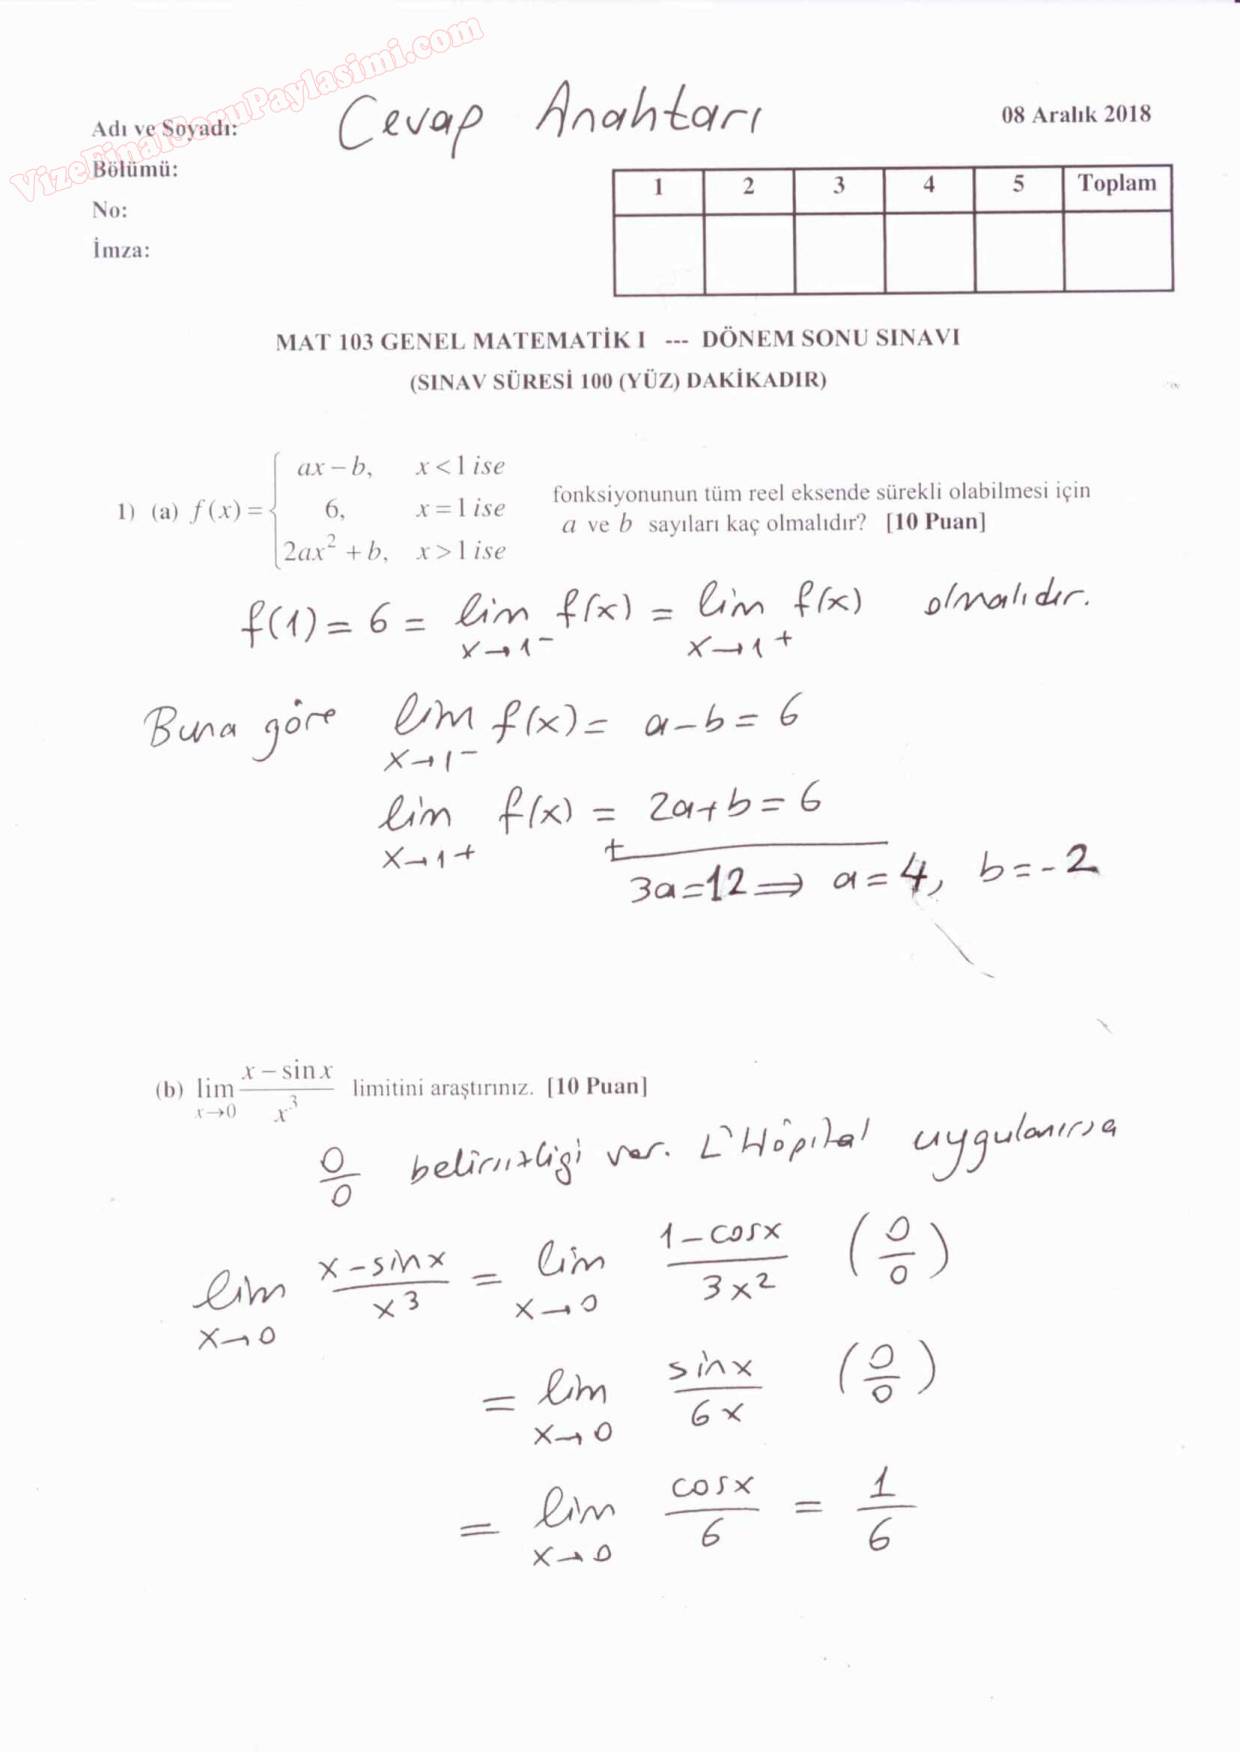 VizeFinalSoruPaylasimi.com
Adı ve Soyadı: Cevap Anahtarı 08 Aralık 2018
Bölümü:
No:
İmza:
1 2 3 4 5 Toplam
MAT 103 GENEL MATEMATİK I --- DÖNEM SONU SINAVI
(SINAV SÜRESİ 100 (YÜZ) DAKİKADIR)
1) (a) f(x) = { ax − b, x < 1 ise
6, x = 1 ise
2ax² + b, x > 1 ise
fonksiyonunun tüm reel eksende sürekli olabilmesi için
a ve b sayıları kaç olmalıdır? [10 Puan]
f(1) = 6 = lim x→1⁻ f(x) = lim x→1⁺ f(x) olmalıdır.
Buna göre lim x→1⁻ f(x) = a − b = 6
lim x→1⁺ f(x) = 2a + b = 6
+ 3a = 12 ⇒ a = 4, b = -2
(b) lim x→0 (x − sin x)/x³ limitini araştırınız. [10 Puan]
0/0 belirsizliği var. L'Hôpital uygulanırsa
lim x→0 (x − sinx)/x³ = lim x→0 (1 − cosx)/3x² (0/0)
= lim x→0 sinx/6x (0/0)
= lim x→0 cosx/6 = 1/6